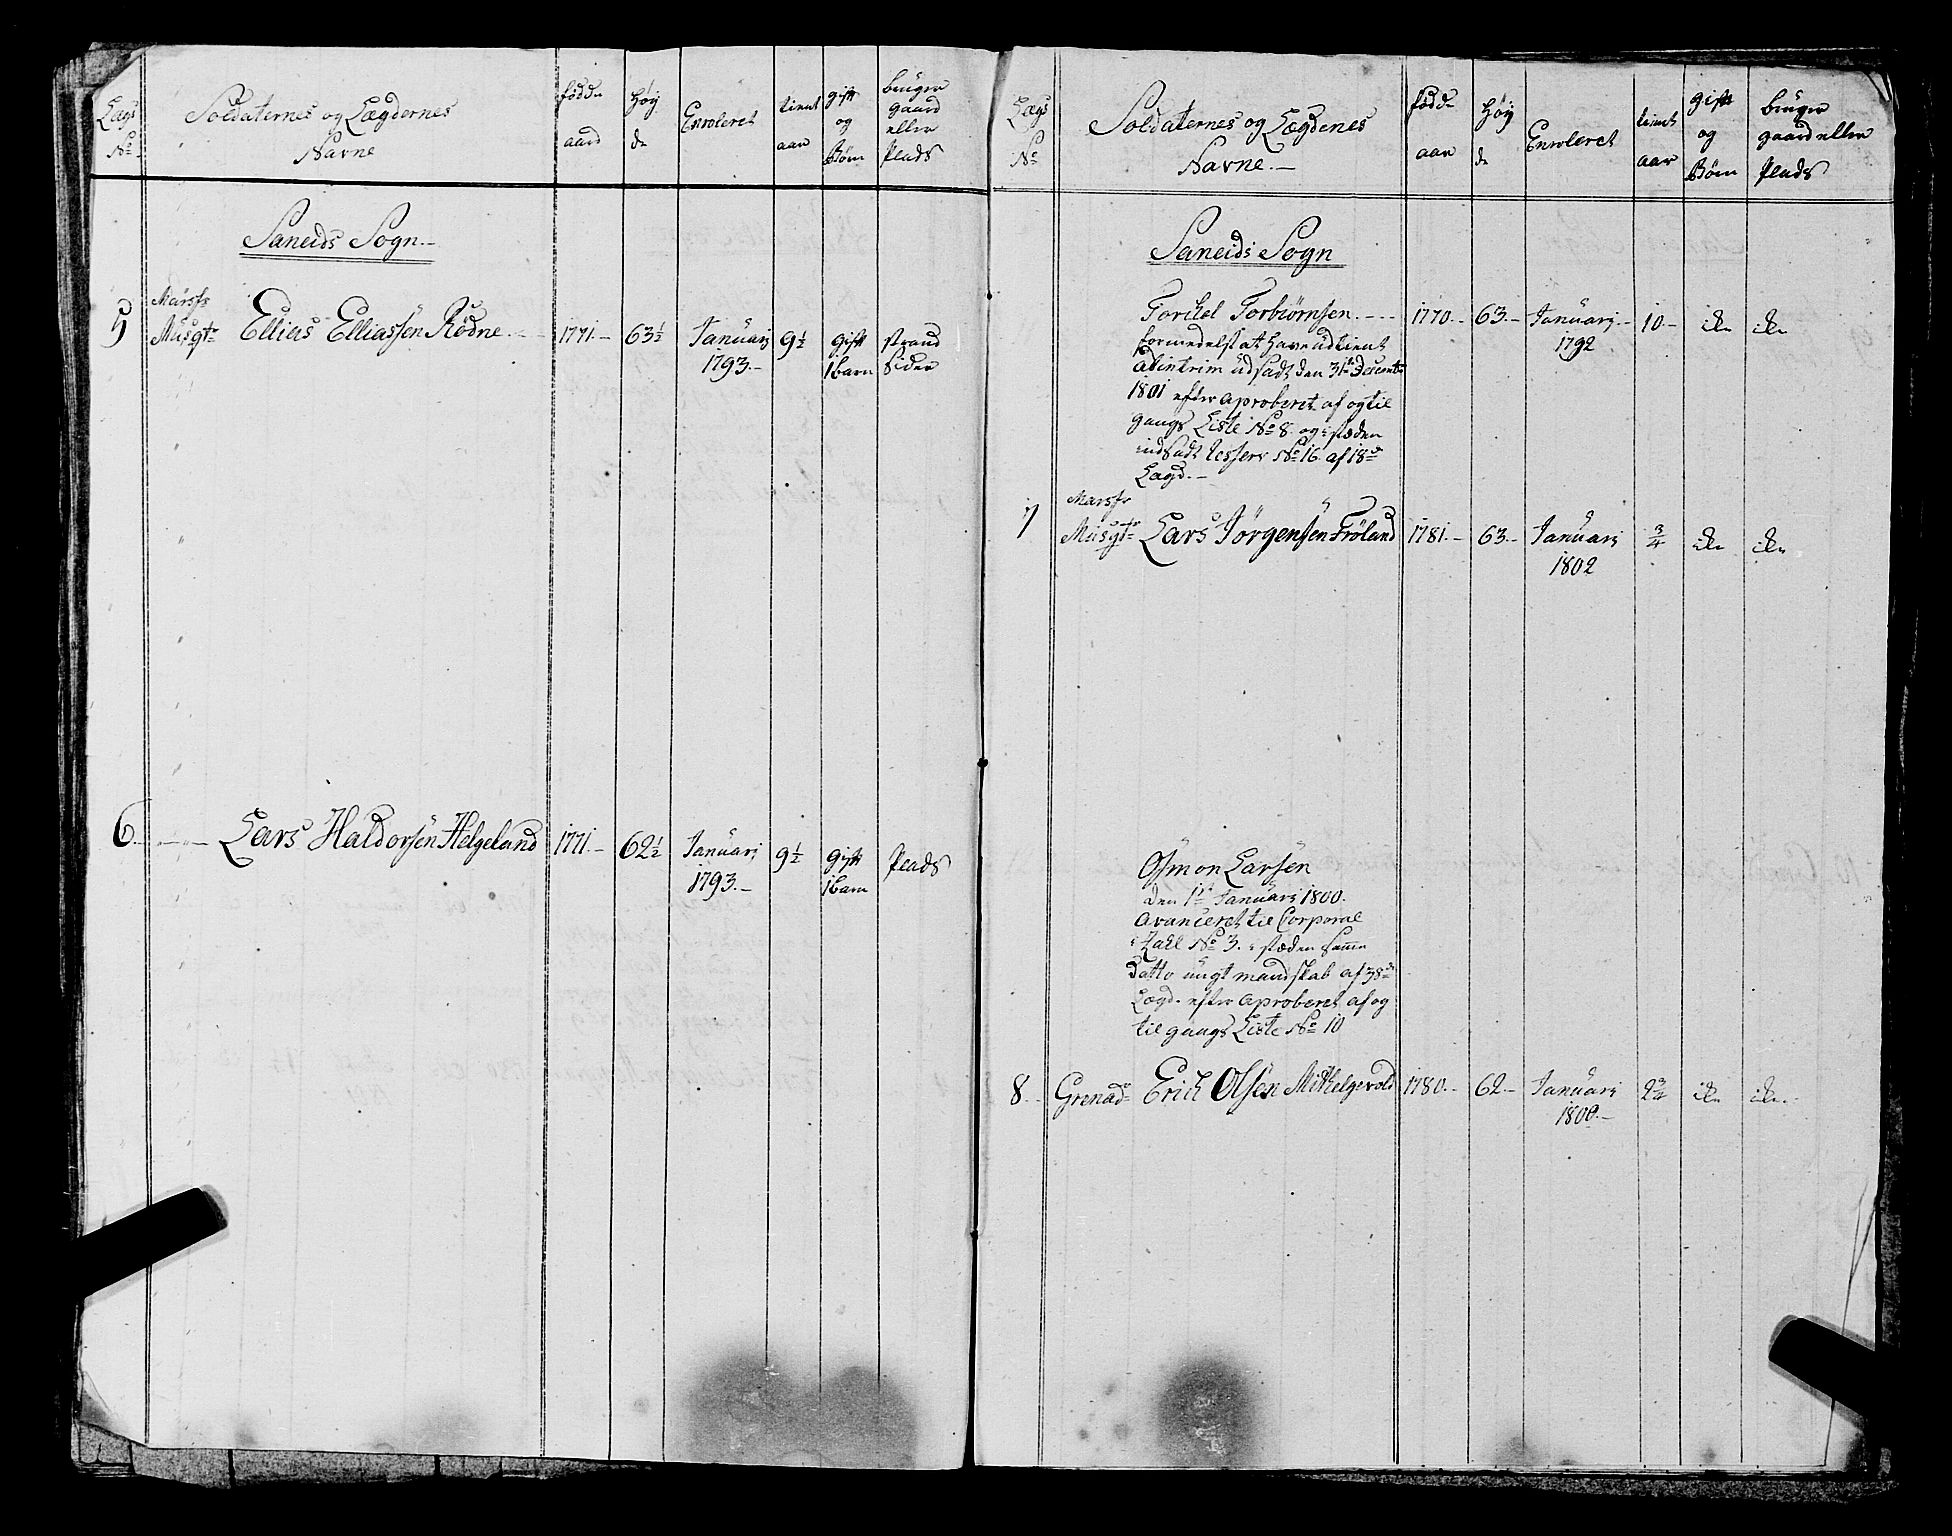 Lægs
No
Soldaternes og Lægdernes
Navne
födde
aar
Høy
de
Enroleret
tient
aar
gift
og
Børn
bruger
gaard
eller
Plads
Saneids Sogn.
5
Marsf.
Musqt.
Ellias Elliassen Rödne
1771.
63½
Januarj
1793.
9½
gift
1 barn
strand
Sider
6.
Lars Haldorsen Helgeland
1771.
62½
Januarj
1793.
9½
gift
1 barn
Plads
Læg
No
Soldaternes og Lægdenes
Navne.
födde
aar
Høy
de
Enroleret
tient
aar
gift
og
Børn
bruger
gaard eller
Plads
Saneids Sogn
Torchel Torbiörnsen.
1770.
63.
Januarj
1792
10.
ike
ike
formedelst at have udtient
Abintrim udsadt den 31te Decembr
1801 efter aproberet af og til
gangs Liste No 8. og i stæden
indsadt No 16 af 18de
Lægd.
7
Marsf.
Musqt.
Lars Jörgensen Fröland
1781.
63.
Januarj
1802
¾
ike
ike
Osmon Larsen
den 1te Januarj 1800.
avanceret til Corporal
i Tall No 3. i stæden samme
datto ungt mandskab af 38de
Lægd. efter aproberet af og
til gangs Liste No 10
8.
Grenad.
Erich Olsen Mithelgevold
1780.
62.
Januarj
1800.
2¾
ike
ike.